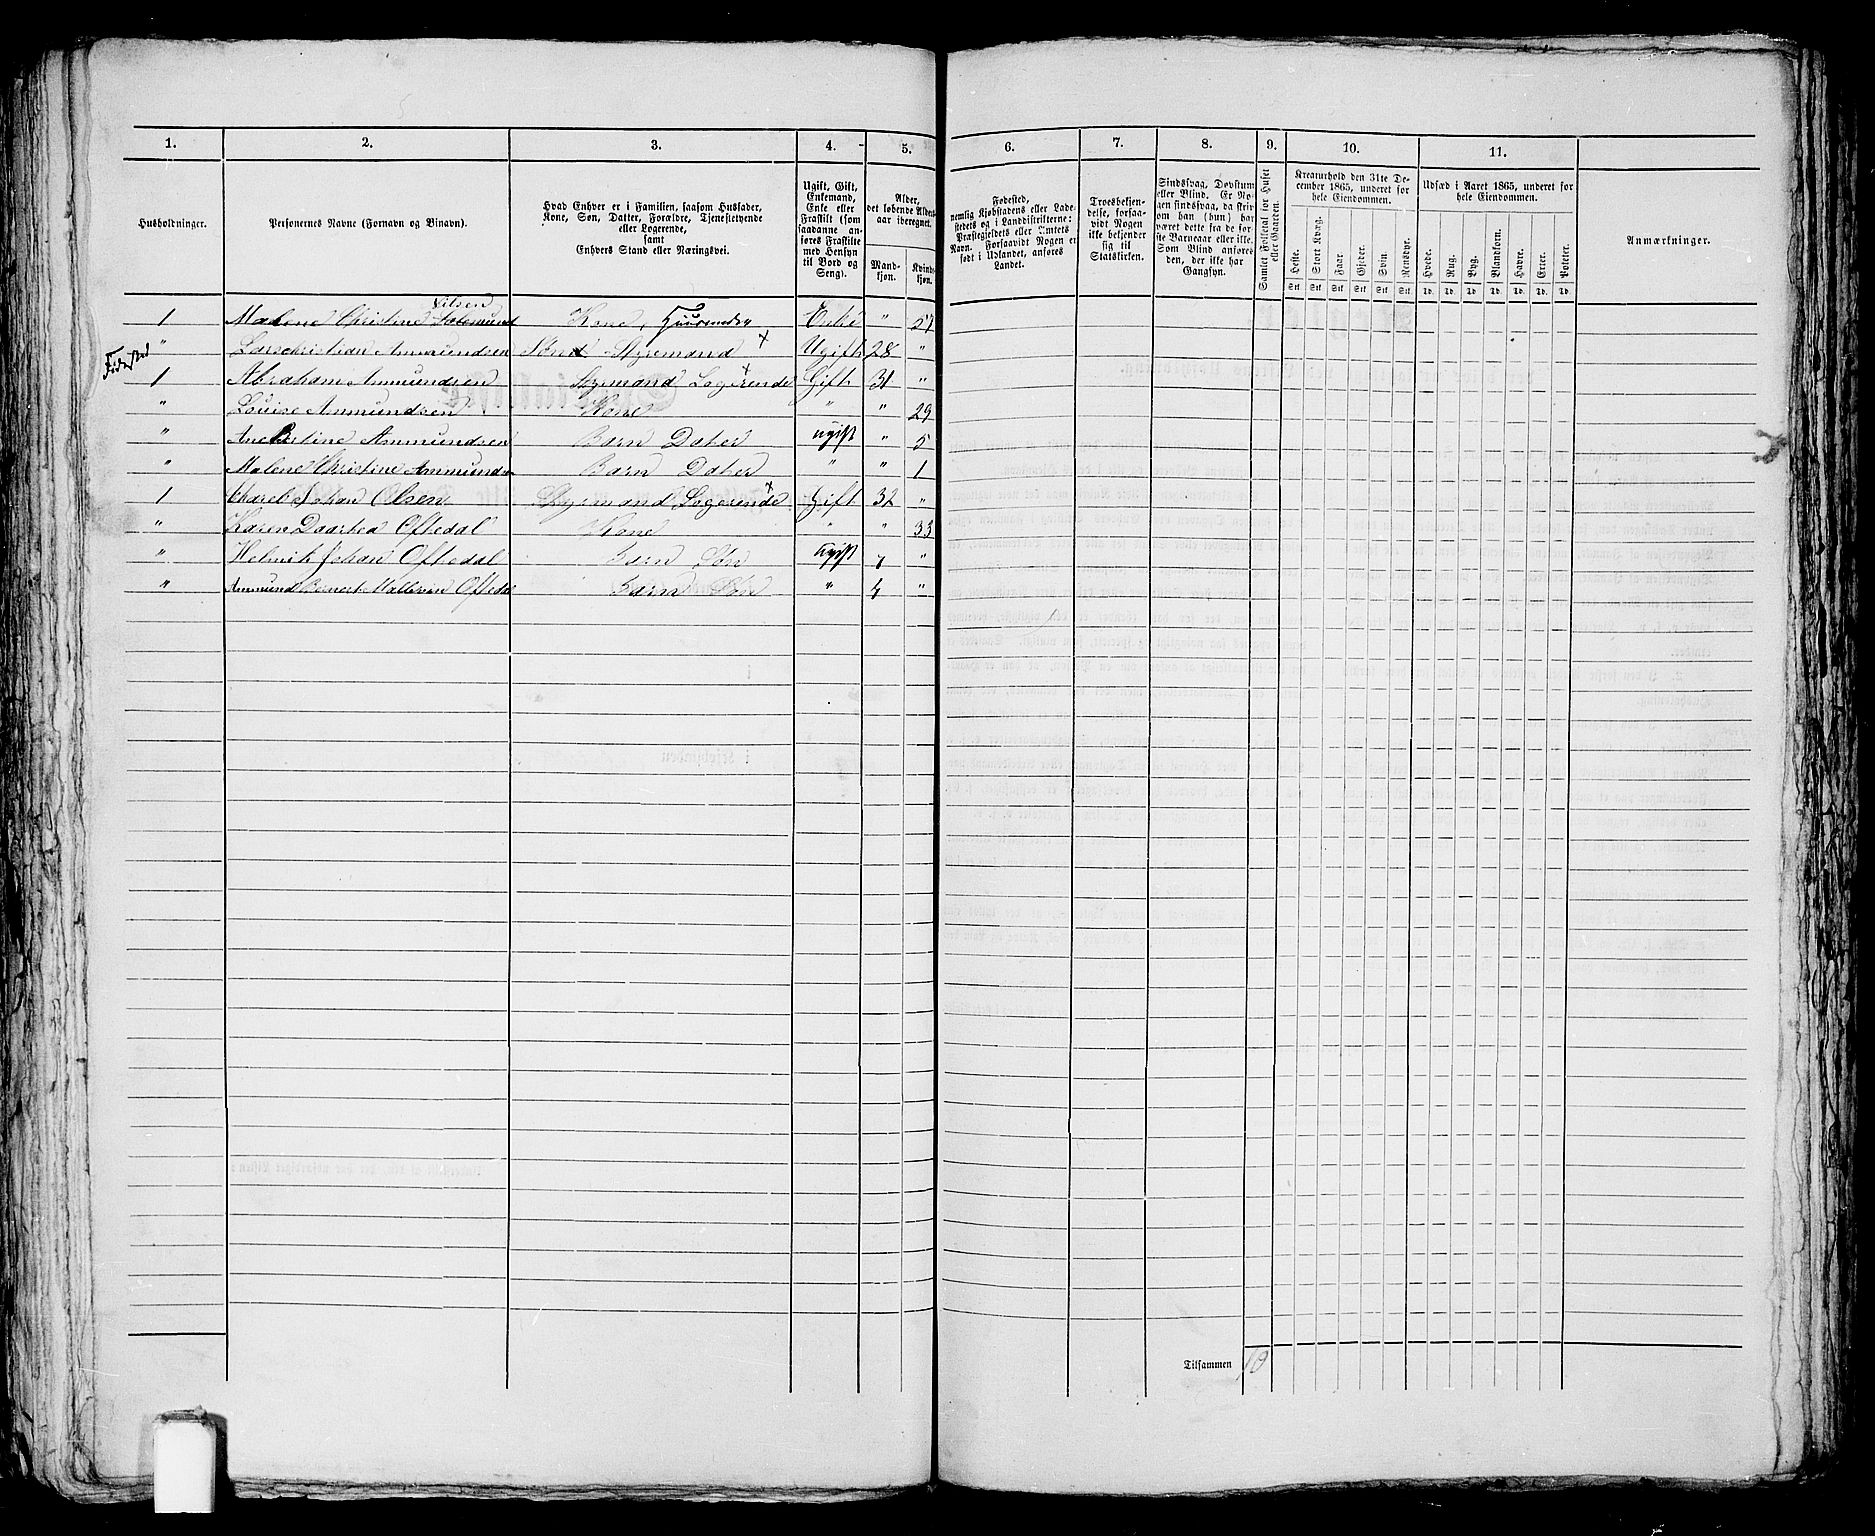 1. 2. 3. 4. 5. 6. 7. 8. 9. 10. 11.
Husholdninger.
Personernes Navne (Fornavn og Binavn).
Hvad Enhver er i Familien, saasom Husfader,
Kone, Søn, Datter, Forældre, Tjenestetyende
eller Logerende,
samt
Enhvers Stand eller Næringsvei.
Ugift, Gift,
Enkemand,
Enke eller
Fraskilt (som
saadanne an-
føres Fraskilte
med Hensyn
til Bord og
Seng).
Alder,
det løbende Alders-
aar iberegnet.
Mand-
kjøn.
Kvind-
kjøn.
Fødested,
nemlig Kjøbstadens eller Lade-
stedets og i Landdistrikterne:
Præstegjeldets eller Amtets
Navn. Forsaavidt Nogen er
født i Udlandet, anføres
Landet.
Troesbekjen-
delse, forsaa-
vidt Nogen
ikke bekjender
sig til
Statskirken.
Sindssvag, Døvstum
eller Blind. Er No-
gen sindssvag, da skriv
om han (hun) har
været dette fra de før-
ste Barneaar eller ikke.
Som Blind anføres
den, der ikke har
Gangsyn.
Samlet Folketal for Huset
eller Gaarden.
Kreaturhold den 31te De-
cember 1865, underet for
hele Eiendommen.
Heste. Stort Kvæg. Faar. Gjeder. Sviin. Rensdyr.
Stk Stk Stk Stk Stk Stk.
Udsæd i Aaret 1865, underet for
hele Eiendommen.
Hvede. Rug. Byg. Blandkorn. Havre. Erter. Poteter.
Td. Td. Td. Td. Td. Td. Td.
Anmærkninger.
Nilsen
1 Malene Christine Salemund Kone, Enke " 57
" Larschristian Ammundsen Søn Styremand Ugift 28 "
1 Abraham Ammundsen Styrmand Logerende Gift 31 "
" Louise Ammundsen Kone " " 29
" Ammundsen Barn Dater ugift " 5
" Malene Christine Ammundsen Barn Dater " " 1
1 Johan Olsen Styrmand Logerende Gift 32 "
" Karen Daartea Oftedal Kone " " 33
" Helmik Johan Oftedal Barn Søn ugift 7 "
" Ammund Bernert Oftedal Barn Søn " 4 "
Tilsammen 10